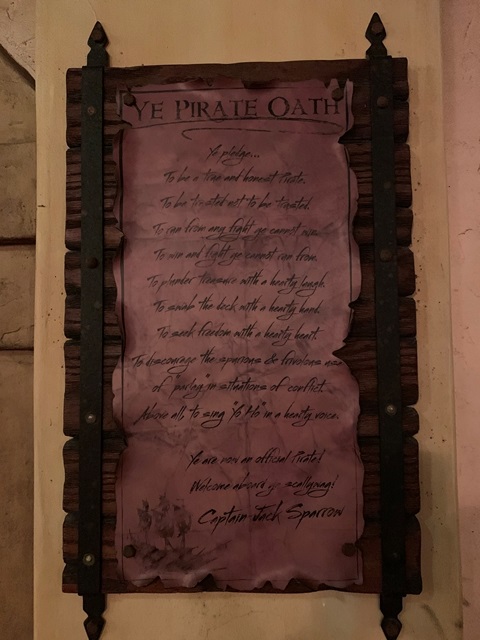 YE PIRATE OATH
Ye pledge...
To be a true and honest Pirate.
To be trusted not to be trusted.
To run from any fight ye cannot win.
To win any fight ye cannot run from.
To plunder treasure with a hearty laugh.
To swab the deck with a hearty hand.
To seek freedom with a hearty heart.
To discourage the spurious & frivolous use
of "parley" in situations of conflict.
Above all, to sing "Yo Ho" in a hearty voice.
Ye are now an official Pirate!
Welcome aboard ye scallywag!
Captain Jack Sparrow